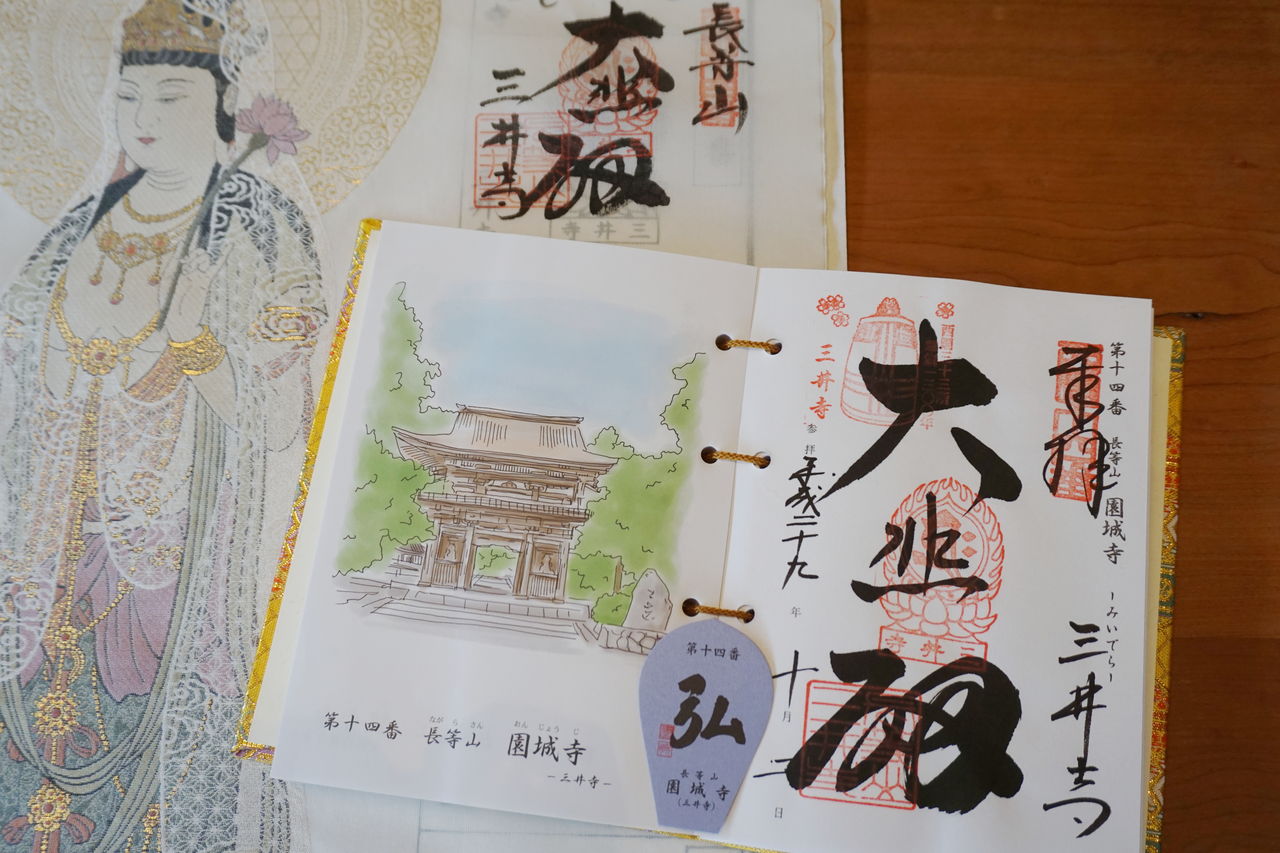 長等山
大悲殿
三井寺
三井寺
奉拝
第十四番 長等山 園城寺
―みいでら―
三井寺
大悲殿
三井寺
三井寺
参拝
平成二十九年十月二日
第十四番
弘
長等山
園城寺
(三井寺)
第十四番 長等山 園城寺
ながらさん おんじょうじ
―三井寺―